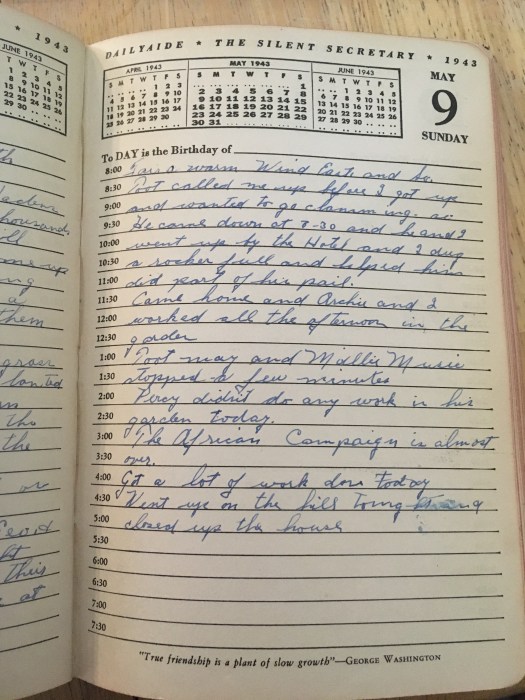 * 1943
JUNE 1943
DAILYAIDE * THE SILENT SECRETARY * 1943
APRIL 1943
S M T W T F S
1 2 3
4 5 6 7 8 9 10
11 12 13 14 15 16 17
18 19 20 21 22 23 24
25 26 27 28 29 30
MAY 1943
S M T W T F S
1
2 3 4 5 6 7 8
9 10 11 12 13 14 15
16 17 18 19 20 21 22
23 24 25 26 27 28 29
30 31
JUNE 1943
S M T W T F S
1 2 3 4 5
6 7 8 9 10 11 12
13 14 15 16 17 18 19
20 21 22 23 24 25 26
27 28 29 30
MAY
9
SUNDAY
To DAY is the Birthday of
8:00 a warm Wind East and
8:30 Poot called me up before I got up
9:00 and wanted to go clamming. as
9:30 He came down at 7-30 and he and I
10:00 went up by the Hotel and I dug
10:30 a rocker full and helped him
11:00 did part of his pail.
11:30 Came home and Archie and I
12:00 worked all the afternoon in the
12:30 garden
1:00 Poot may and Mollie Music
1:30 stopped a few minutes
2:00 Percy didn't do any work in his
2:30 garden today.
3:00 The African Campaign is almost
3:30 over.
4:00 Got a lot of work done today
4:30 Went up on the hill
5:00 closed up the house
5:30
6:00
6:30
7:00
7:30
"True friendship is a plant of slow growth"—GEORGE WASHINGTON